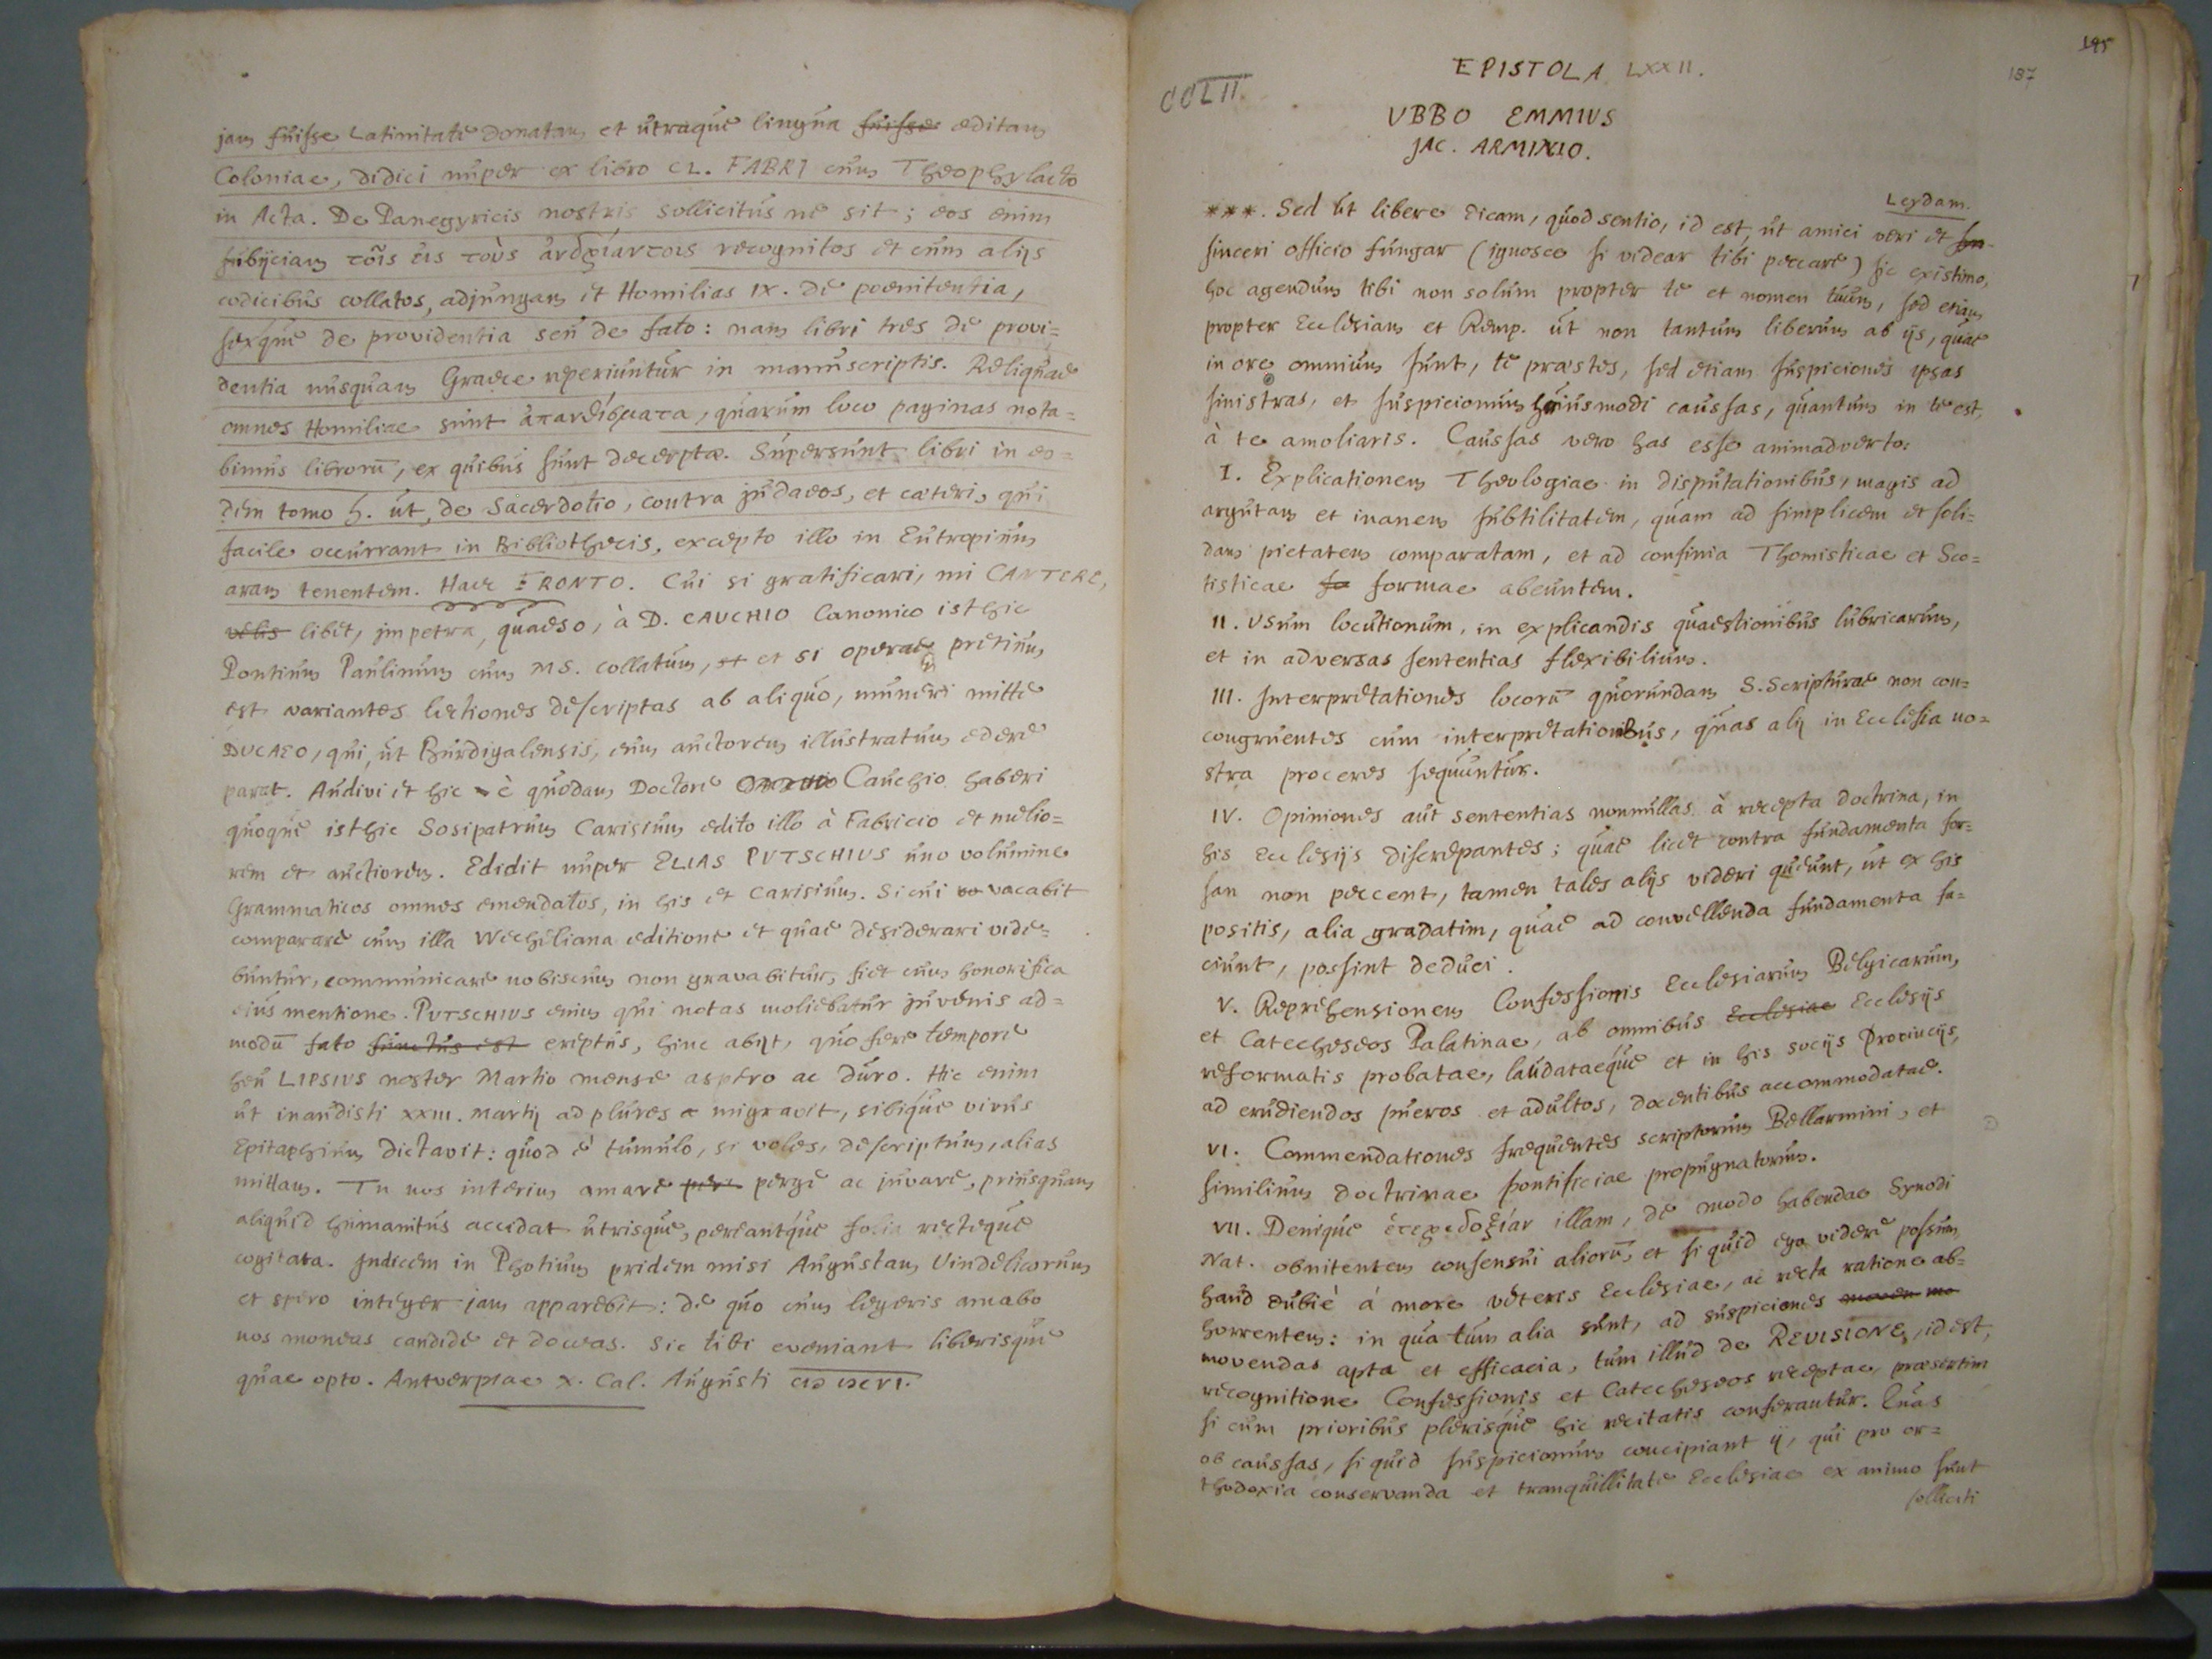 jam fuisse Latinitate donatam et utraque lingua fuisse editam
Coloniae, didici nuper ex libro CL. FABRI cum Theophylacto
in Acta. De Panegyricis nostris sollicitus ne sit; eos enim
subijciam τοῖς εἰς τοὺς ἀνδριάντας recognitos et cum alijs
codicibus collatos, adjungam et Homilias IX. de poenitentia,
sexque de providentia seu de fato: nam libri tres de provi=
dentia nusquam Graece reperiuntur in manuscriptis. Reliquae
omnes Homiliae sunt ἀπανθίσματα, quarum loco paginas nota=
bimus librorū, ex quibus sunt decerptae. Supersunt libri in eo=
dem tomo h. ut, de Sacerdotio, contra judaeos, et caeteri, qui
facile occurrant in Bibliothecis, excepto illo in Eutropium
aram tenentem. Haec FRONTO. Cui si gratificari, mi CANTERE,
velis libet, impetra, quaeso, à D. CAUCHIO Canonico isthic
Pontium Paulinum cum MS. collatum, et et si operae pretium
est variantes lectiones descriptas ab aliquo, muneri mitte
DUCAEO, qui, ut Burdigalensis, eum auctorem illustratum edere
parat. Audivi et hic è quodam Doctore Cauchio haberi
quoque isthic Sosipatrum Carisium edito illo à Fabricio et melio=
rem et auctiorem. Edidit nuper ELIAS PUTSCHIUS uno volumine
Grammaticos omnes emendatos, in his et Carisium. Si cui va vacabit
comparare cum illa Wecheliana editione et quae desiderari vide=
buntur, communicare nobiscum non gravabitur, fiet cum honorifica
eius mentione. PUTSCHIUS enim qui notas moliebatur juvenis ad=
modū fato functus est ereptus, hinc abijt, quo fere tempore
heu LIPSIUS noster Martio mense aspero ac duro. Hic enim
ut inaudisti XXIII. Martij ad plures migravit, sibique vivus
Epitaphium dictavit: quod è tumulo, si voles, descriptum, alias
mittam. Tu nos interim amare perge ac juvare, priusquam
aliquid humanitus accidat utrisque, pereantque folia recteque
cogitata. Indicem in Photium pridem misi Augustam Vindelicorum
et spero integer jam apparebit: de quo cum legeris amabo
nos moneas candide et doceas. Sic tibi eveniant liberisque
quae opto. Antverpiae X. Cal. Augusti
195
187
EPISTOLA LXXII.
CCLII
UBBO EMMIUS
JAC. ARMINIO.
Leydam.
***. Sed ut libere dicam, quod sentio, id est, ut amici veri et
sinceri officio fungar (ignosce si videar tibi peccare) sic existimo,
hoc agendum tibi non solum propter te et nomen tuum, sed etiam
propter Ecclesiam et Remp. ut non tantum liberum ab ijs, quae
in ore omnium sunt, te praestes, sed etiam suspiciones ipsas
sinistras, et suspicionum huiusmodi caussas, quantum in te est,
à te amoliaris. Caussas vero has esse animadverto:
I. Explicationem Theologiae in disputationibus, magis ad
argutam et inanem subtilitatem, quam ad simplicem et soli=
dam pietatem comparatam, et ad confinia Thomisticae et Sco=
tisticae fo formae abeuntem.
II. Usum locutionum, in explicandis quaestionibus lubricarum,
et in adversas sententias flexibilium.
III. Interpretationes locorū quorundam S. Scripturae non con=
congruentes cum interpretationibus, quas alij in Ecclesia no=
stra proceres sequuntur.
IV. Opiniones aut sententias nonnullas à recepta doctrina, in
his Ecclesijs discrepantes; quae licet contra fundamenta for=
san non peccent, tamen tales alijs videri queunt, ut ex his
positis, alia gradatim, quae ad convellenda fundamenta fa=
ciunt, possint deduci.
V. Reprehensionem Confessionis Ecclesiarum Belgicarum,
et Catecheseos Palatinae, ab omnibus Ecclesiae Ecclesijs
reformatis probatae, laudataeque et in his socijs Provincijs,
ad erudiendos pueros et adultos, docentibus accommodatae.
VI. Commendationes frequentes scriptorum Bellarmini, et
similium doctrinae pontificiae propugnatorum.
VII. Denique ἑτεροδοξίαν illam, de modo habendae Synodi
Nat. obnitentem consensui aliorū, et si quid ego videre possum,
haud dubie á more veteris Ecclesiae, ac recta ratione ab=
horrentem: in qua tum alia sunt, ad suspiciones
movendas apta et efficacia, tum illud de REVISIONE, id est,
recognitione Confessionis et Catecheseos receptae, praesertim
si cum prioribus plerisque hic recitatis conferantur. Quas
ob caussas, si quid suspicionum concipiant ij, qui pro or=
thodoxia conservanda et tranquillitate Ecclesiae ex animo sunt
solliciti